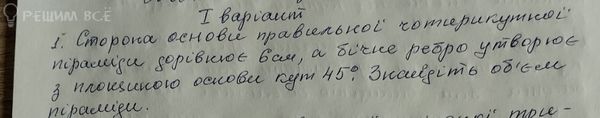 РЕШИМ ВСЁ
I варіант
1. Сторона основи правильної чотирикутної
піраміди дорівнює 6 см, а бічне ребро утворює
з площиною основи кут 45°. Знайдіть об'єм
піраміди.